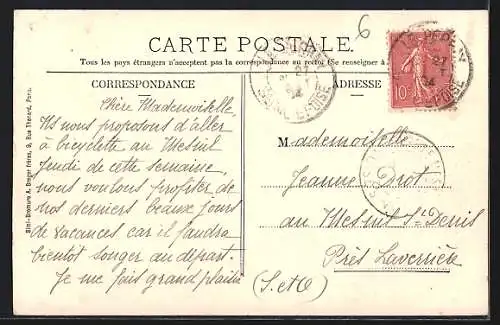 6
CARTE POSTALE
Tous les pays étrangers n'acceptent pas la correspondance au recto (Se renseigner à
CORRESPONDANCE
ADRESSE
Chère Mademoiselle,
Us nous proposons d'aller
à bicyclette au Mesnil
jeudi de cette semaine,
nous voulons profiter de
nos derniers beaux jours
de vacances car il faudra
bientôt songer au départ.
Je me fais grand plaisir
Mademoiselle
Jeanne Drot
au Mesnil St Denis
Près Laverrière
(S. et O)
10
27
04
SEINE-ET-OISE
Dreger Frères, 9, Rue Thénard, Paris.